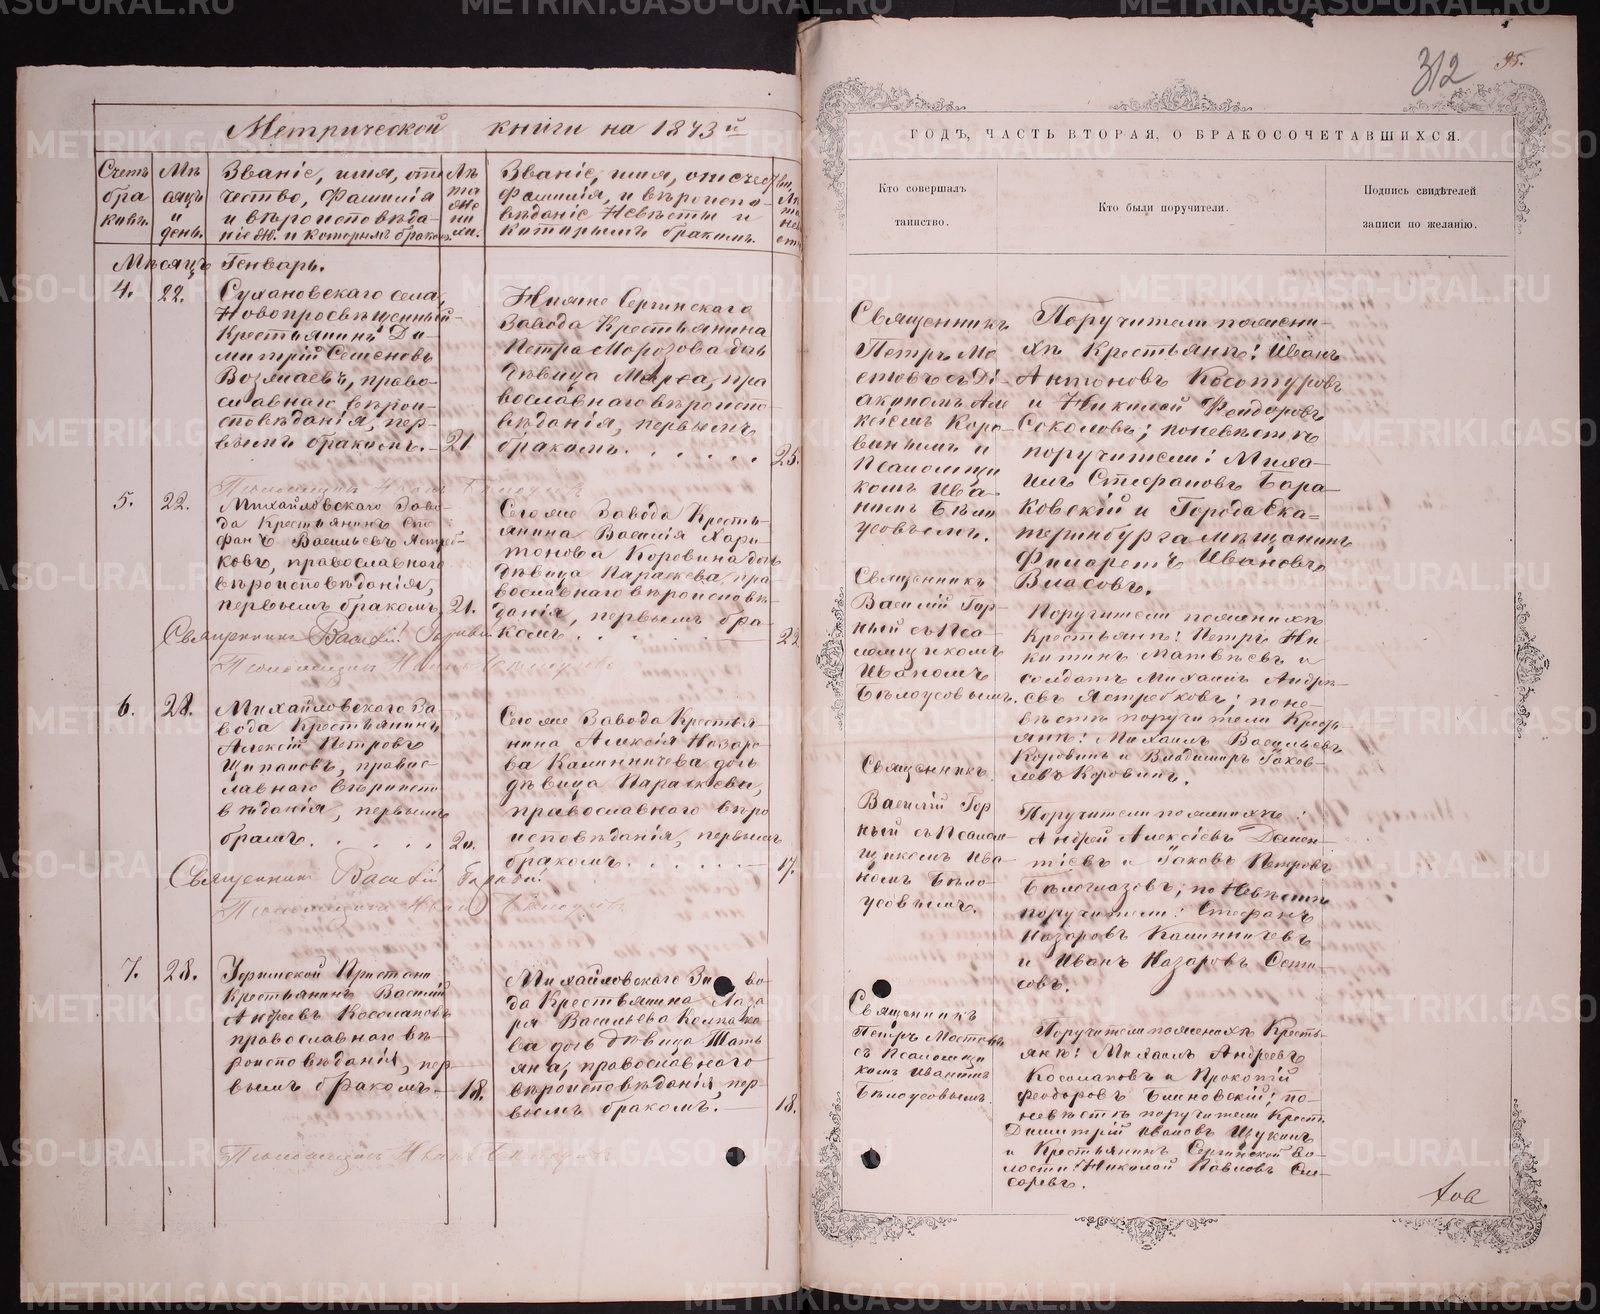 Метрической книги на 1873й
Счетъ браковъ.
Мѣсяцъ и день.
Званіе, имя, отчество, фамилія и вѣроисповѣданіе Ж. и которымъ бракомъ.
Лѣта жениха.
Званіе, имя, отчество, фамилія, и вѣроисповѣданіе Невѣсты и которымъ бракомъ.
Мѣсяцъ Генварь.
4.
22.
Сухановскаго села,
Новопросвѣщенный
Крестьянинъ Ди-
митрій Семеновъ
православнаго вѣрои-
сповѣданія, пер-
вымъ бракомъ.
21
Нижне Сергинскаго
Завода Крестьянина
Петра Морозова дочь
дѣвица Марѳа, пра
вославнаго вѣроиспо-
вѣданія, первымъ
бракомъ.
25.
5.
22.
Михайловскаго Заво-
да Крестьянинъ Сте
фанъ Васильевъ Ястреб-
ковъ, православнаго
вѣроисповѣданія,
первымъ бракомъ
21.
Сегоже Завода Кресть-
янина Василія Хари-
тонова Коровина дочь
дѣвица Параскева, пра-
вославнаго вѣроисповѣ-
данія, первымъ бра-
комъ
22
Священникъ Василій Горный
6.
28.
Михайловскаго За-
вода Крестьянинъ
Алексій Петровъ
Щипановъ, право-
славнаго вѣроиспо
вѣданія, первымъ
бракомъ.
20.
Сегоже Завода Крестья-
нина Алексія Назаро-
ва Калиничева дочь
дѣвица Параскева,
православнаго вѣро
исповѣданія, первымъ
бракомъ.
17.
Священникъ Василій Горный.
7.
28.
Уфимской Пристани
Крестьянинъ Василій
Андреевъ Косолаповъ
православнаго вѣ-
роисповѣданія, пер-
вымъ бракомъ.
18.
Михайловскаго Заво-
да Крестьянина Лаза
ря Васильева Колпако-
ва дочь дѣвица Тать
яна, православнаго
вѣроисповѣданія, пер-
вымъ бракомъ.
18.
312
95.
ГОДЪ, ЧАСТЬ ВТОРАЯ, О БРАКОСОЧЕТАВШИХСЯ.
Кто совершалъ
таинство.
Кто были поручители.
Подпись свидѣтелей
записи по желанію.
Священникъ
Петръ Мо
стовъ съ Ді-
акономъ Але
ксіемъ Коро-
винымъ и
Псаломщи
комъ Ива-
номъ Бѣло
усовымъ.
Поручители по жени-
хѣ Крестьянѣ: Иванъ
Антоновъ Косотуровъ
и Николай Феодоровъ
Соколовъ; по невѣстѣ
поручители: Миха-
илъ Стефановъ Бара-
ковскій и Города Ека-
теринбурга мѣщанинъ
Филаретъ Ивановъ
Власовъ.
Священникъ
Василій Гор-
ный съ Пса-
ломщикомъ
Иваномъ
Бѣлоусовымъ.
Поручители по женихѣ
Крестьянѣ: Петръ Ни
китинъ Матвѣевъ и
солдатъ Михаилъ Андрѣ-
евъ Ястребковъ; по не-
вѣстѣ поручители Кресть
янѣ: Михаилъ Васильевъ
Коровинъ и Владимиръ Іаков-
левъ Коровинъ.
Священникъ
Василій Гор
ный съ Псалом-
щикомъ Ива-
номъ Бѣло-
усовымъ.
Поручители по женихѣ:
Андрей Алексіевъ Демен-
тіевъ и Іаковъ Петровъ
Бѣлоглазовъ; по Невѣстѣ
поручители: Стефанъ
Назаровъ Калиничевъ
и Иванъ Назаровъ
Священникъ
Петръ Мостовъ
съ Псаломщи
комъ Иваномъ
Бѣлоусовымъ.
Поручители по женихѣ Кресть-
янѣ: Михаилъ Андреевъ
Косолаповъ и Прокопій
Феодоровъ Блиновскій; по-
невѣстѣ поручители Крест.
Димитрій Ивановъ Щукинъ
и Крестьянинъ Сергинской во-
лости Николай Павловъ Сле
саревъ.
METRIKI.GASO-URAL.RU